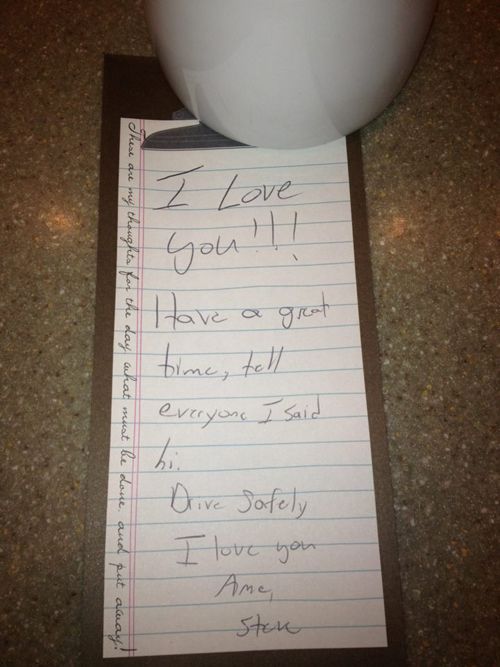 These are my thoughts for the day what must be done, and put away!
I Love
you!!!
Have a great
time, tell
everyone I said
hi.
Drive Safely
I love you
Ame,
Steve